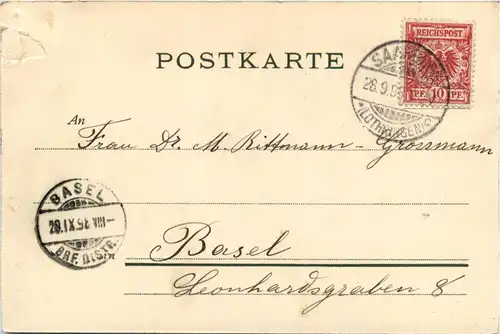 POSTKARTE
REICHSPOST
PF. 10 PF.
28.9.98
*(LOTHRINGEN)*
An
Frau Dr. M. Rittmann-Grossmann
BASEL
28.IX.98.VIII-
BRF. DISTR.
in
Basel
Leonhardsgraben 8